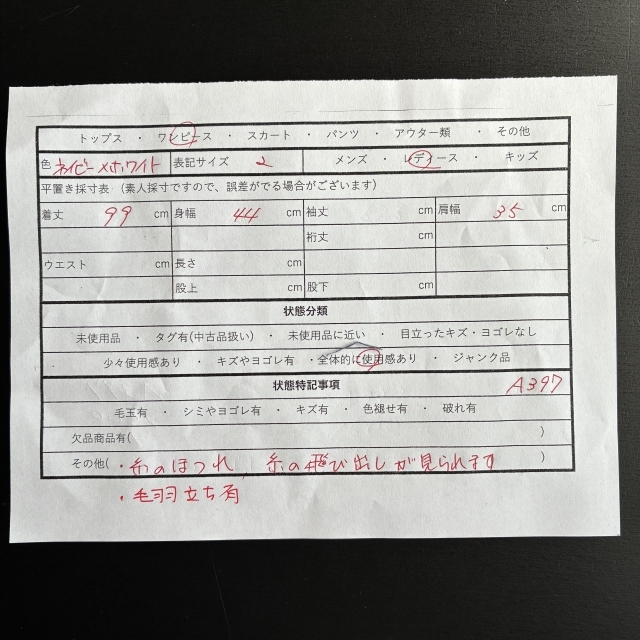 トップス ・ ワンピース ・ スカート ・ パンツ ・ アウター類 ・ その他
色 ネイビー×ホワイト 表記サイズ 2 メンズ ・ レディース ・ キッズ
平置き採寸表 (素人採寸ですので、誤差がでる場合がございます)
着丈 99 cm 身幅 44 cm 袖丈 cm 肩幅 35 cm
裄丈 cm
ウエスト cm 長さ cm
股上 cm 股下 cm
状態分類
未使用品 ・ タグ有(中古品扱い) ・ 未使用品に近い ・ 目立ったキズ・ヨゴレなし
少々使用感あり ・ キズやヨゴレ有 ・全体的に使用感あり ・ ジャンク品
状態特記事項 A397
毛玉有 ・ シミやヨゴレ有 ・ キズ有 ・ 色褪せ有 ・ 破れ有
欠品商品有( )
その他( ・糸のほつれ、糸の飛び出しが見られます )
・毛羽立ち有